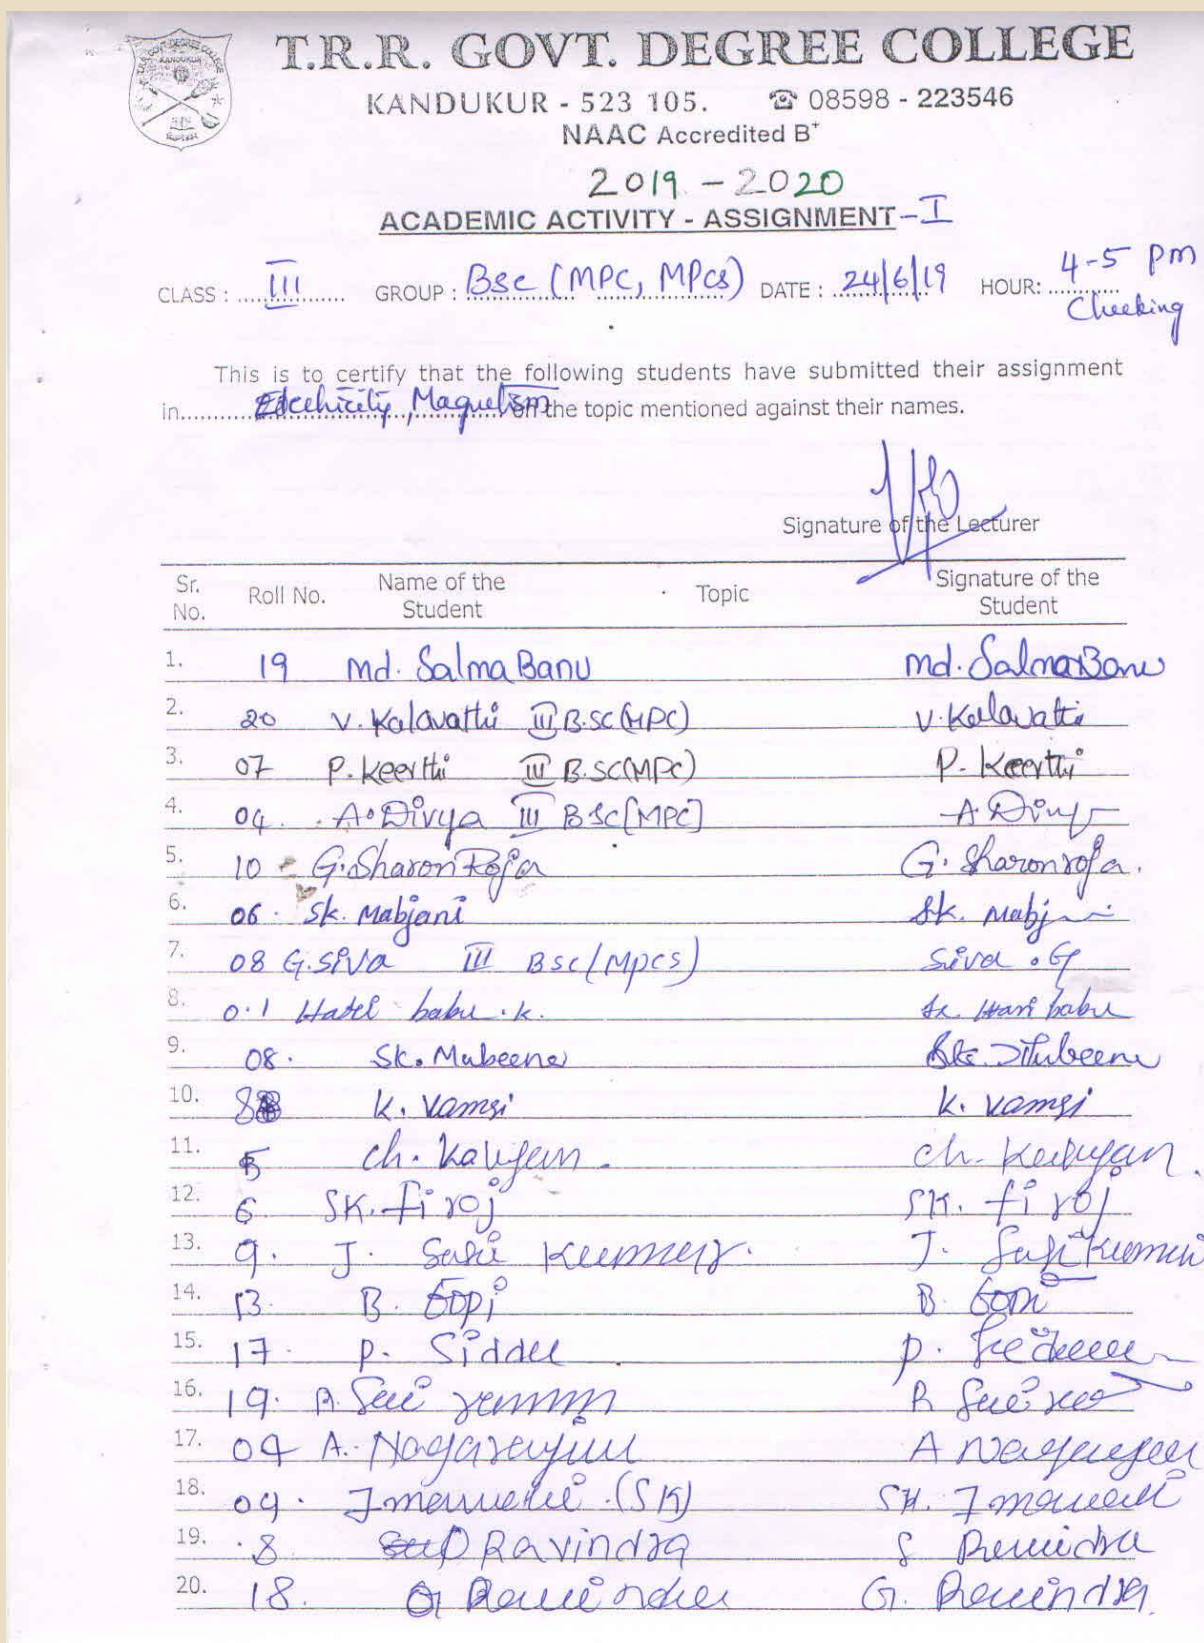 T.R.R. GOVT. DEGREE COLLEGE
KANDUKUR - 523 105. ☎ 08598 - 223546
NAAC Accredited B+
2019 - 2020
ACADEMIC ACTIVITY - ASSIGNMENT - I
CLASS : III GROUP : Bsc (MPC, MPcs) DATE : 24/6/19 HOUR: 4-5 pm
Checking
This is to certify that the following students have submitted their assignment
in Electricity, Magnetism on the topic mentioned against their names.
Signature of the Lecturer
Sr. No. Roll No. Name of the Student Topic Signature of the Student
1. 19 Md. Salma Banu Md. Salma Banu
2. 20 V. Kalavathi III B.SC (MPC) V. Kalavathi
3. 07 P. Keerthi III B.SC (MPC) P. Keerthi
4. 04. A. Divya III BSC [MPC] A Divya
5. 10 G. Sharon Roja G. Sharon roja.
6. 06. Sk. Mabjani Sk. Mabjani
7. 08 G. Siva III Bsc (Mpcs) Siva . G
8. 0.1 babu . k. Hari babu
9. 08. Sk. Mubeena Sk. Mubeena
10. 8 K. Vamsi K. Vamsi
11. 5 ch. Kalyan. ch. Kalyan.
12. 6 SK. firoj SK. firoj
13. 9. J. Sasi Kumar. J. Sasi Kumar
14. 13. B. Gopi B. Gopi
15. 17. P. Siddu P.
16. 19. R. R
17. 04 A. Nagaraju A Nagaraju
18. 09. (SK) SK.
19. 8 Ravindra S Ravindra
20. 18. G Ravindra G. Ravindra